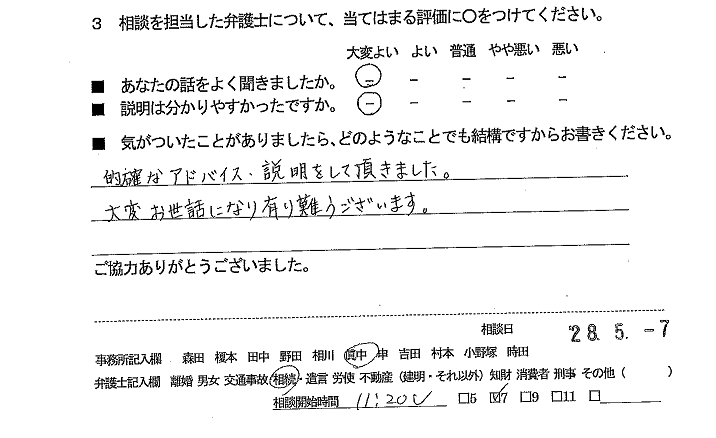 3 相談を担当した弁護士について、当てはまる評価に〇をつけてください。
大変よい よい 普通 やや悪い 悪い
■ あなたの話をよく聞きましたか。 − − − − −
■ 説明は分かりやすかったですか。 − − − − −
■ 気がついたことがありましたら、どのようなことでも結構ですからお書きください。
的確なアドバイス、説明をして頂きました。
大変お世話になり有り難うございます。
ご協力ありがとうございました。
相談日 28.5.-7
事務所記入欄 森田 榎本 田中 野田 相川 眞中 申 吉田 村本 小野塚 時田
弁護士記入欄 離婚 男女 交通事故 相続・遺言 労使 不動産（建明・それ以外）知財 消費者 刑事 その他（ ）
相談開始時間 11:20 □5 ☑7 □9 □11 □